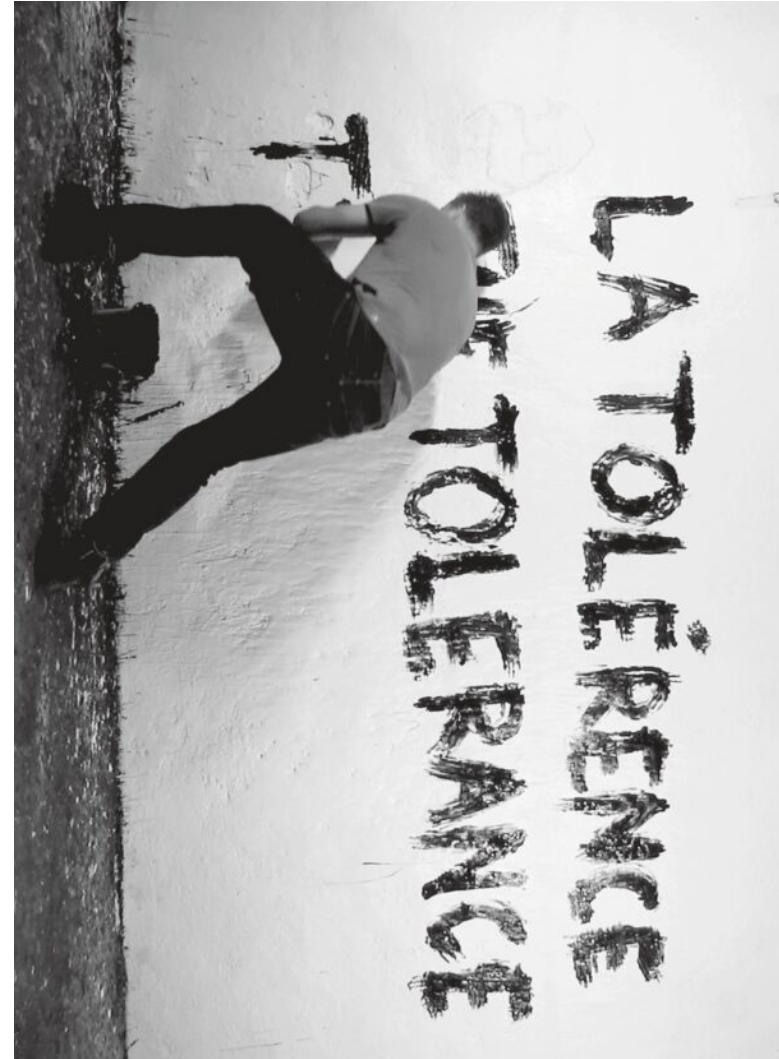 LA TOLÉRENCE
TOLERANCE
T